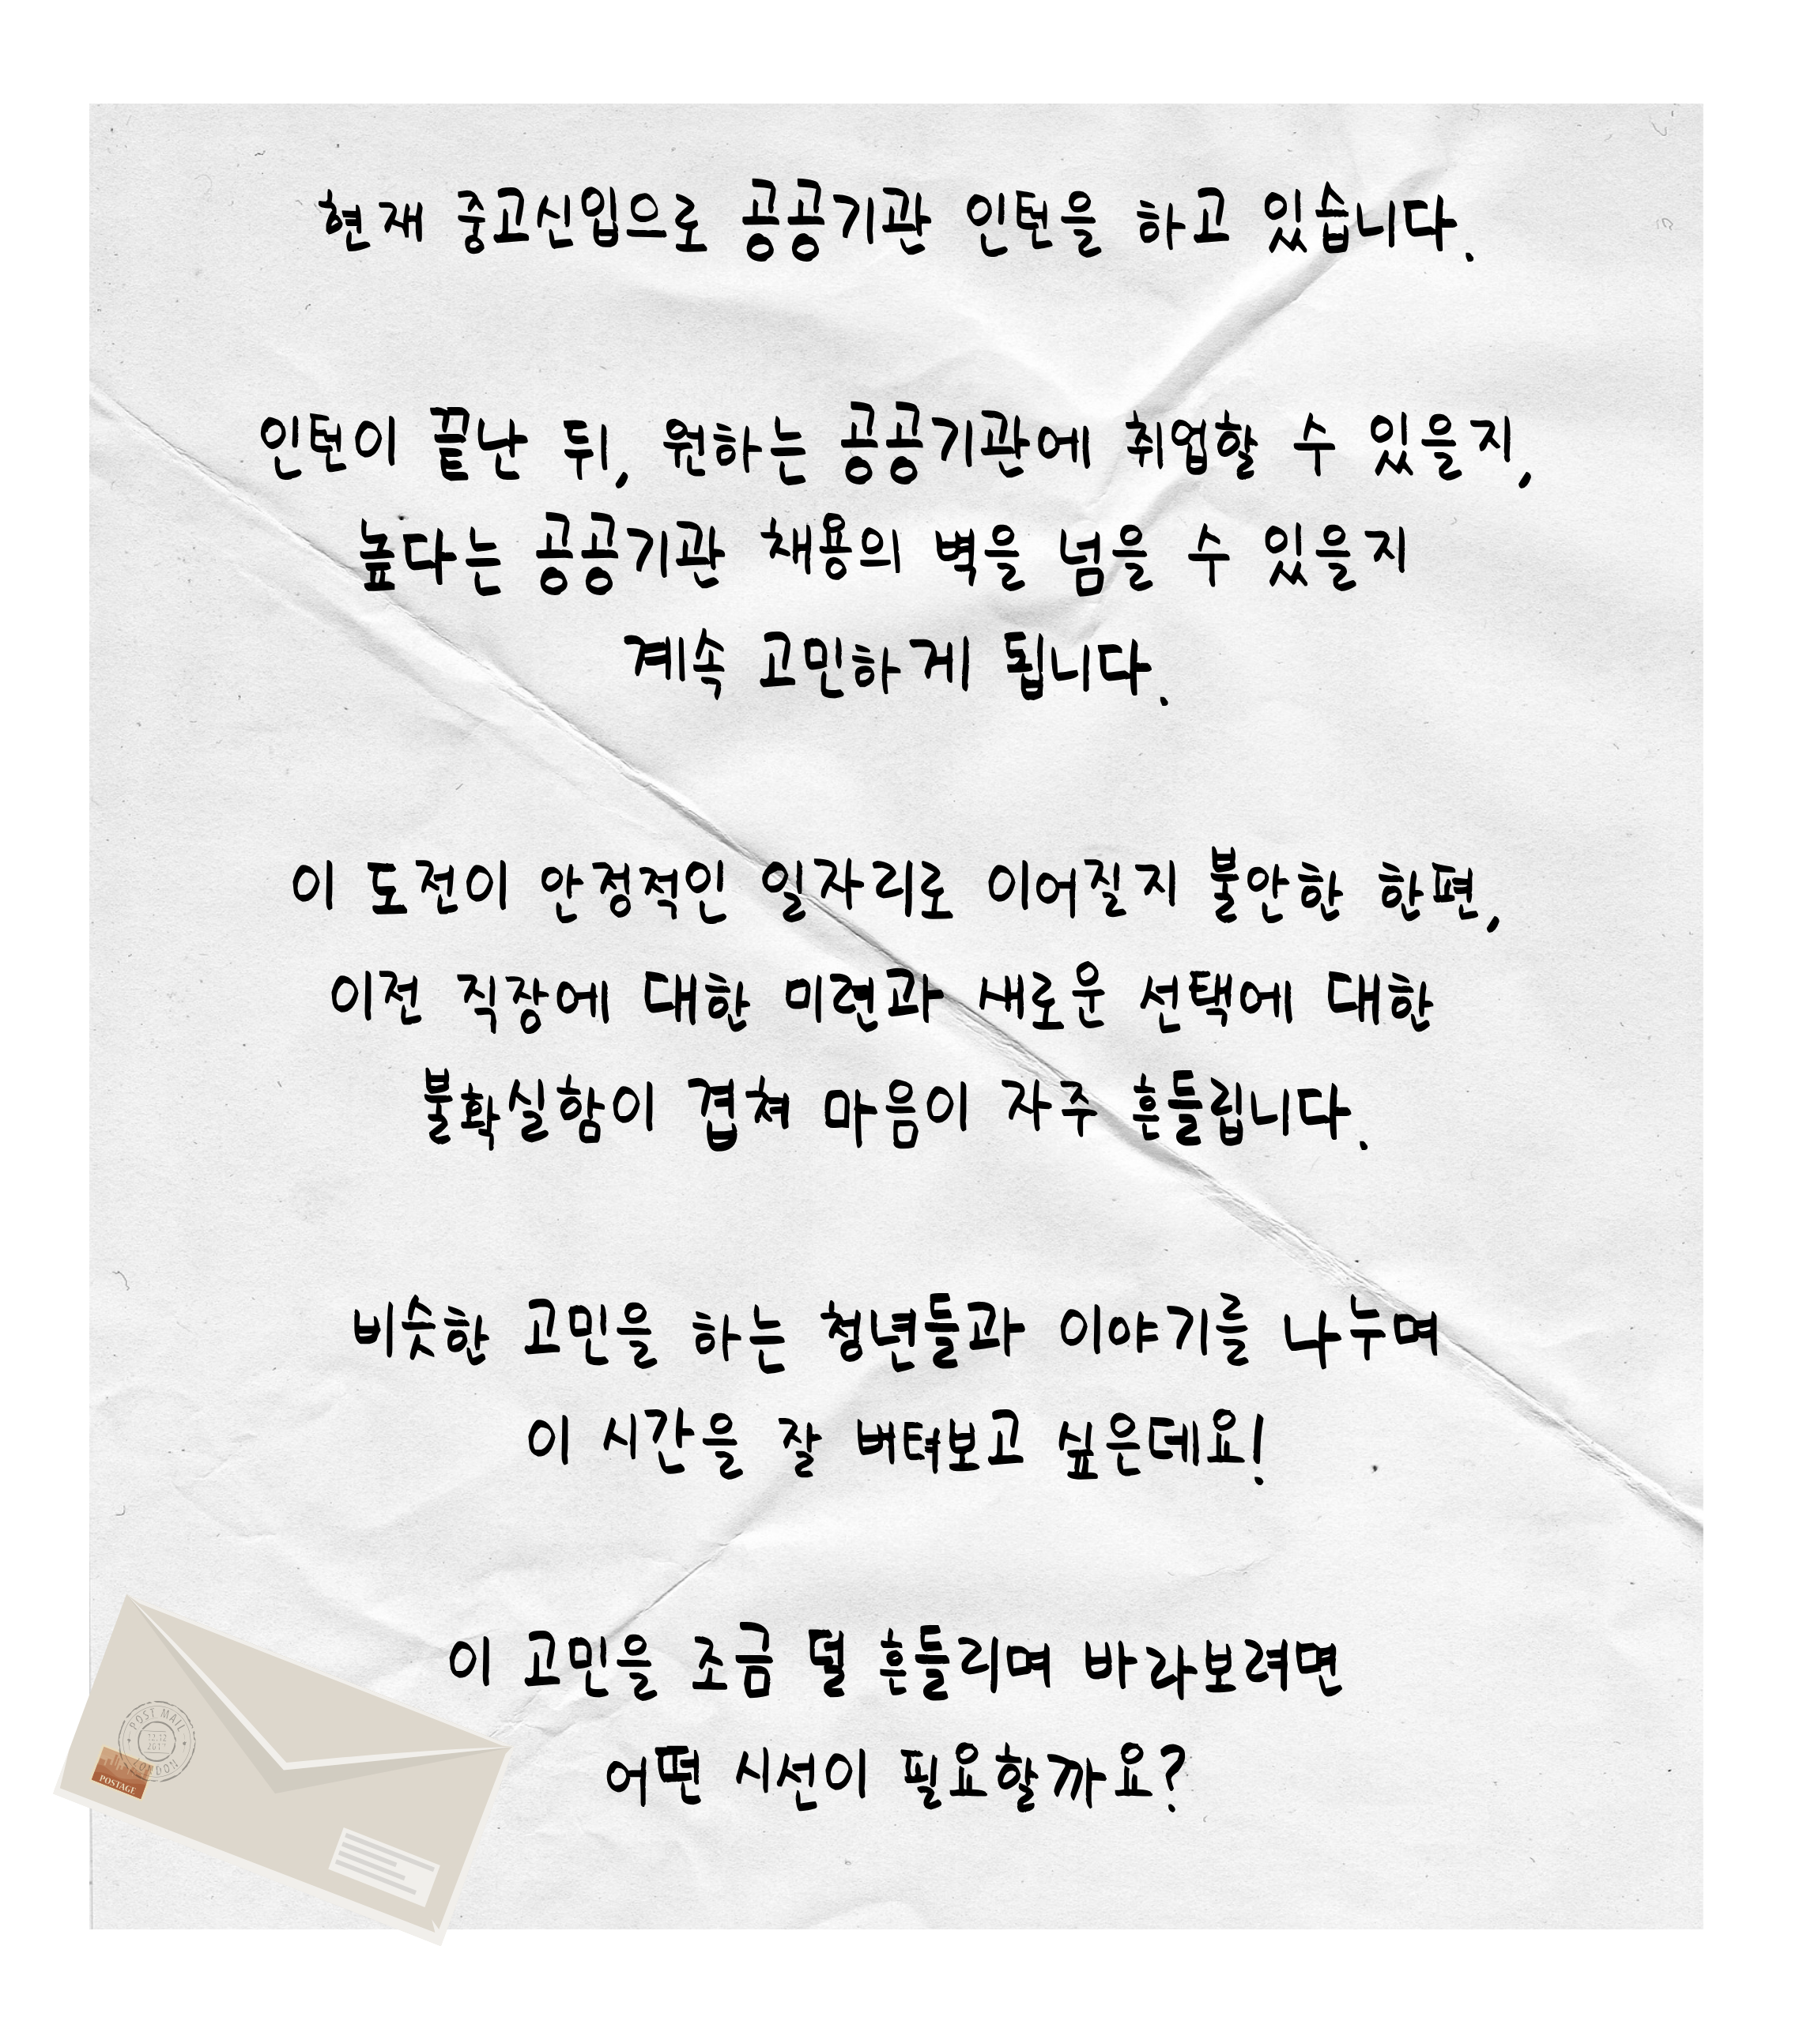 현재 중고신입으로 공공기관 인턴을 하고 있습니다.
인턴이 끝난 뒤, 원하는 공공기관에 취업할 수 있을지,
높다는 공공기관 채용의 벽을 넘을 수 있을지
계속 고민하게 됩니다.
이 도전이 안정적인 일자리로 이어질지 불안한 한편,
이전 직장에 대한 미련과 새로운 선택에 대한
불확실함이 겹쳐 마음이 자주 흔들립니다.
비슷한 고민을 하는 청년들과 이야기를 나누며
이 시간을 잘 버텨보고 싶은데요!
이 고민을 조금 덜 흔들리며 바라보려면
어떤 시선이 필요할까요?
POST MAIL
LONDON
POSTAGE